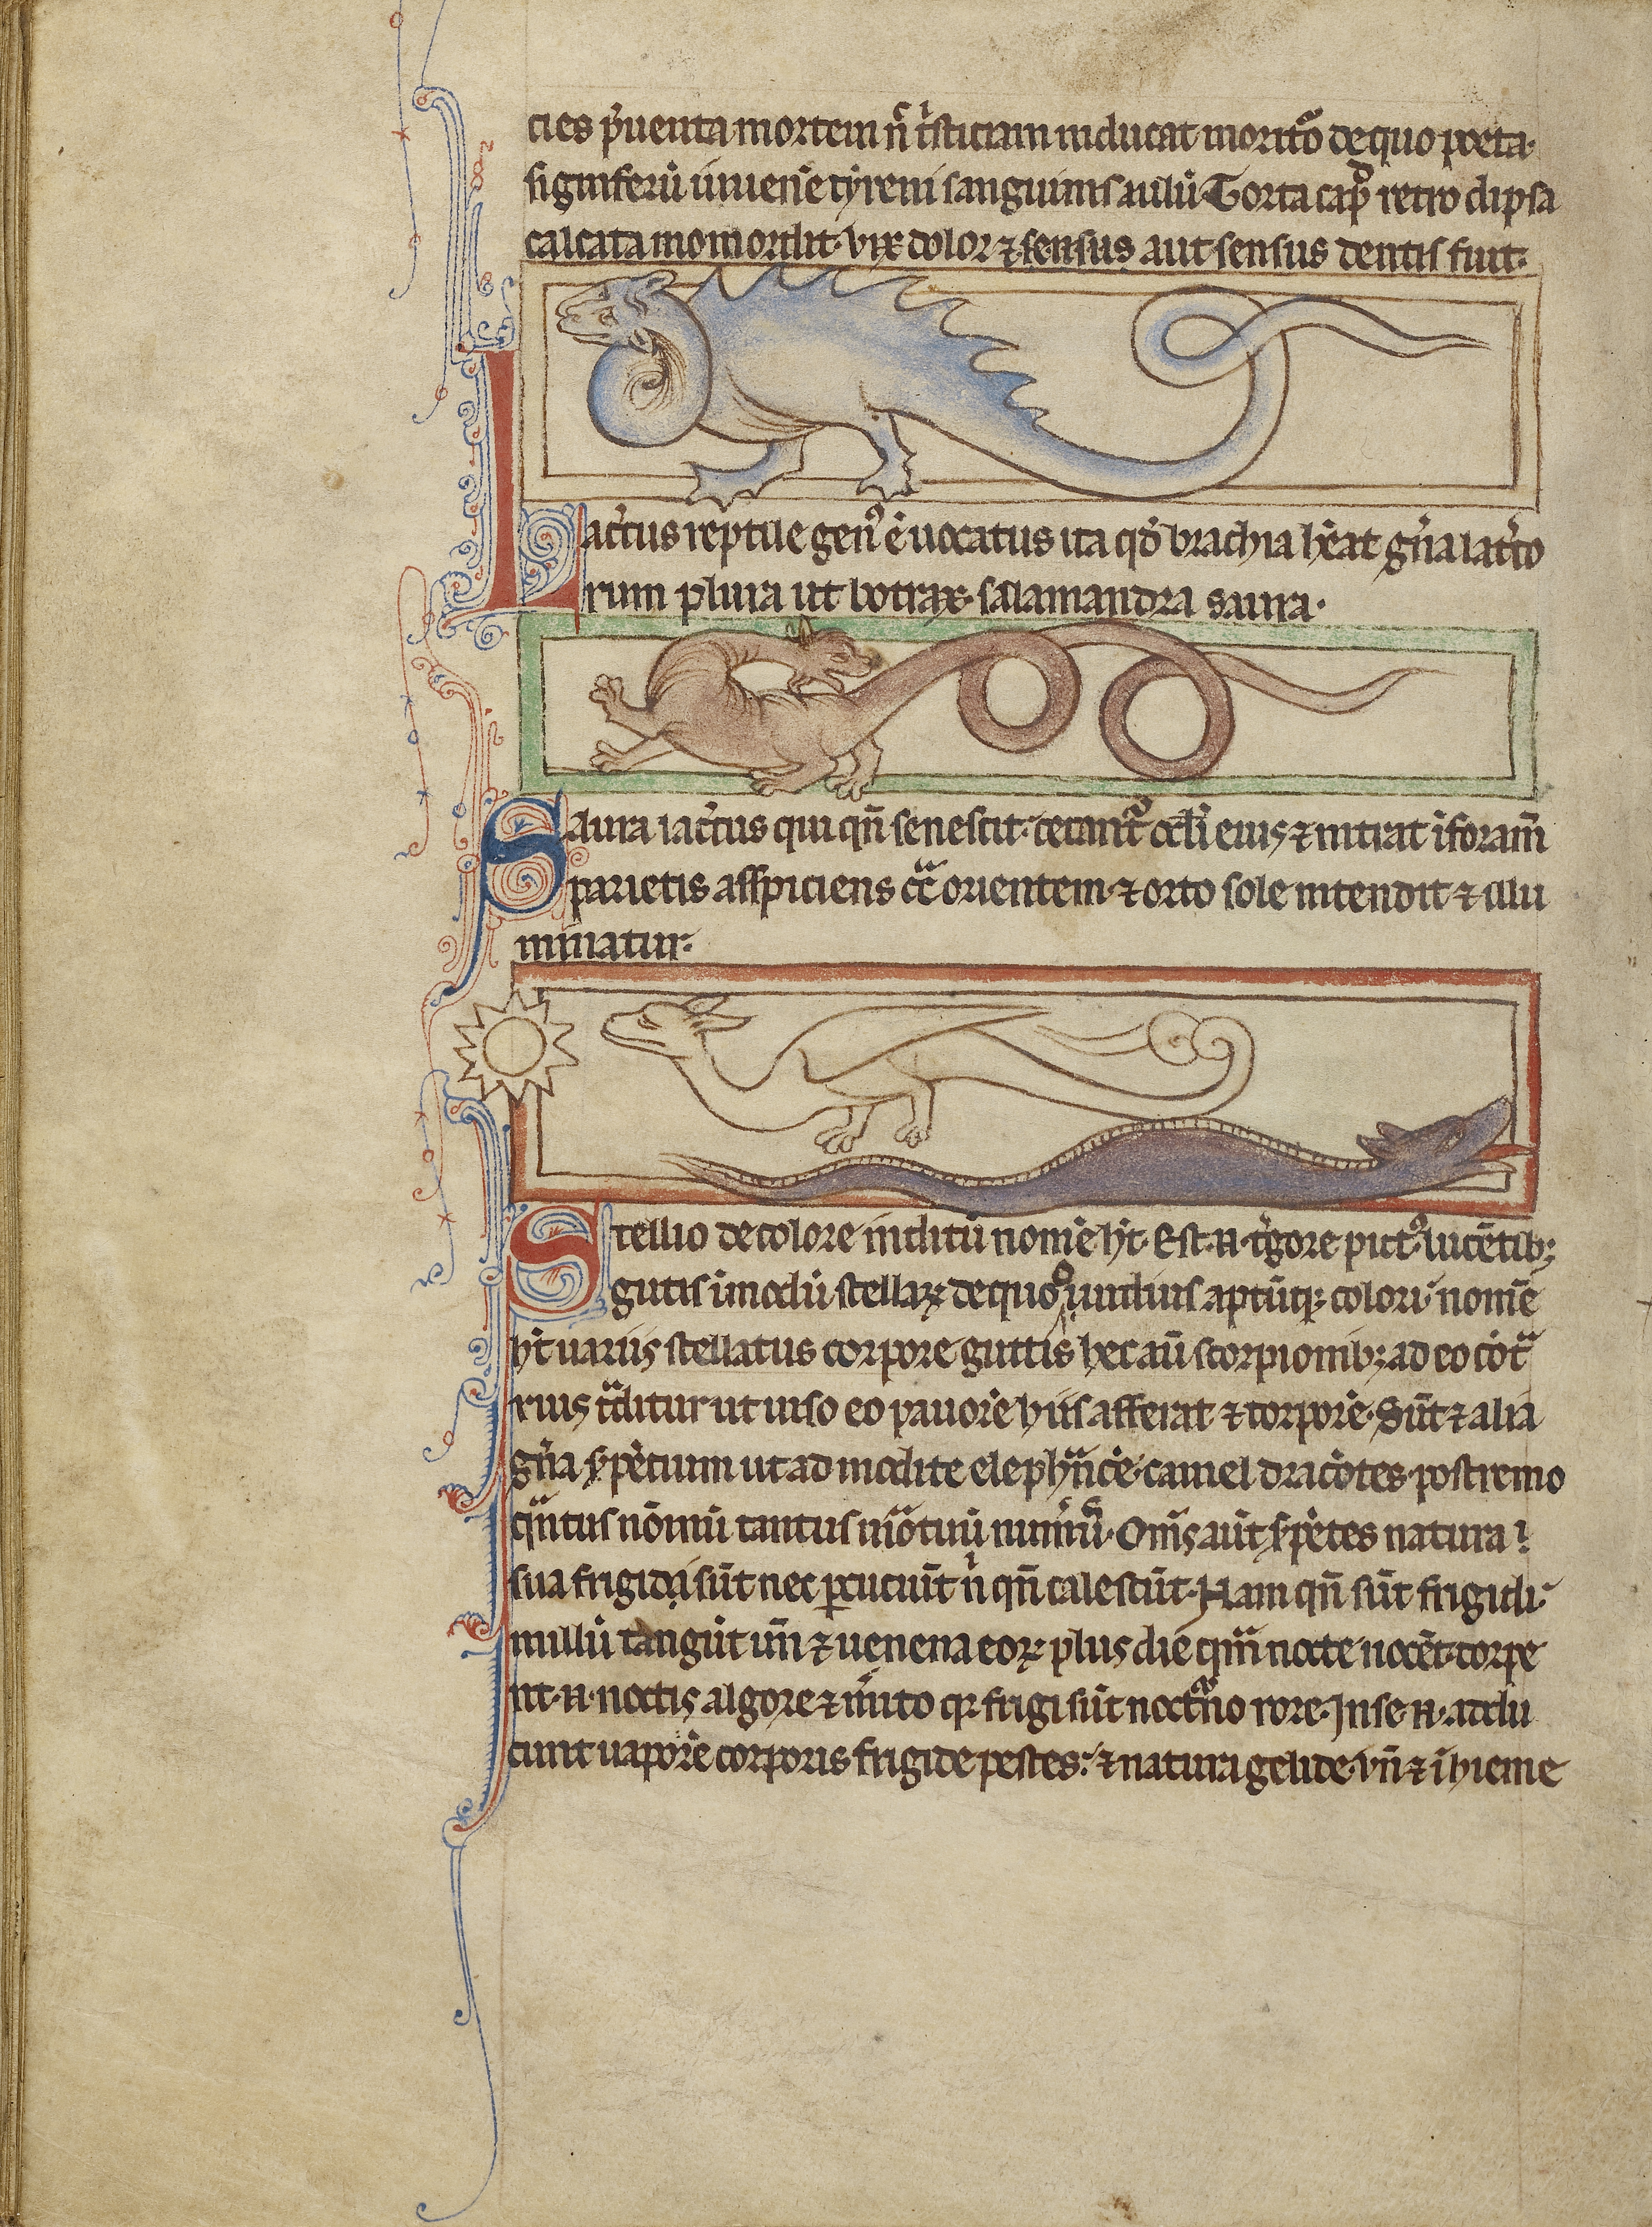 cies p̄uenta mortem n̄ t̾sticiam inducat moritȏ de quo poeta·
signiferū iuuenē tyreni sanguinis aulū Torta cap̄ retro dipsa
calcata momordit· vix dolor ⁊ sensus aut sensus dentis fuit·
Lac̾tus reptile genꝰ ē uocatus ita qd̄ brachia hēat gn̄a lac̾to
rum plura ut botrax· salamandra saura·
Saura lac̾tus qui qn̄ senescit· cecant᷑ oc̄li eius ⁊ intrat ī foram̄
parietis asspiciens cͣ orientem· ⁊ orto sole intendit ⁊ illu
minatur·
Stellio de colore inditū nomē ht̄· Est·n·t̾gore pictꝰ lucētib;
gutis ī modū stellaꝝ de quo ouidius aptūqꝫ colori nomē
ht̄ uariis stellatus corpore guttis hec aū scorpionib; adeo cōtͣ
rius tͣditur ut uiso eo pauorē hiis afferat ⁊ torporē· Sūt ⁊ alia
gn̄a s̾pētium ut admodite elephn̄cie· camel dracōtes· postremo
qͣntus nōinū tantus mōtiuū num̾ū· Om̄s aūt s̾pētes natura
sua frigida sūt nec ꝑcuciūt n̄ qn̄ calescūt· Nam qn̄ sūt frigidi·
nullū tangūt un̄ ⁊ uenena eoꝝ plus die qͣm nocte nocēt· torpe
nt·n·noctis algore ⁊ m̾ito qꝛ frigi sūt noctͣno rore· In se·n·addu
cunt uaporē corporis frigide pestes· ⁊ natura gelide· vn̄ ⁊ ī hieme